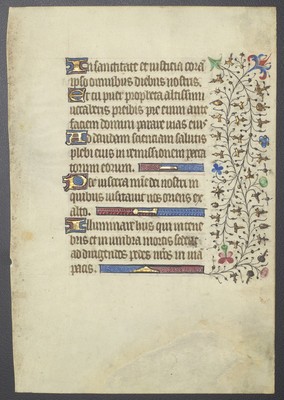 In sanctitate et iusticia corā
ipso omnibus diebus nostris.
Et tu puer propheta altissimi
uocaberis preibis .n. ante
faciem domini parare uias eius
Ad dandam scienciam salutis
plebi eius in remissionem pecca
torum eorum.
Per uiscera mīe dei nostri in
quibus uisitauit nos oriens ex
alto.
Illuminare hiis qui in tene
bris et in umbra mortis sedent
ad dirigendos pedes nr̄os in uia
pacis.